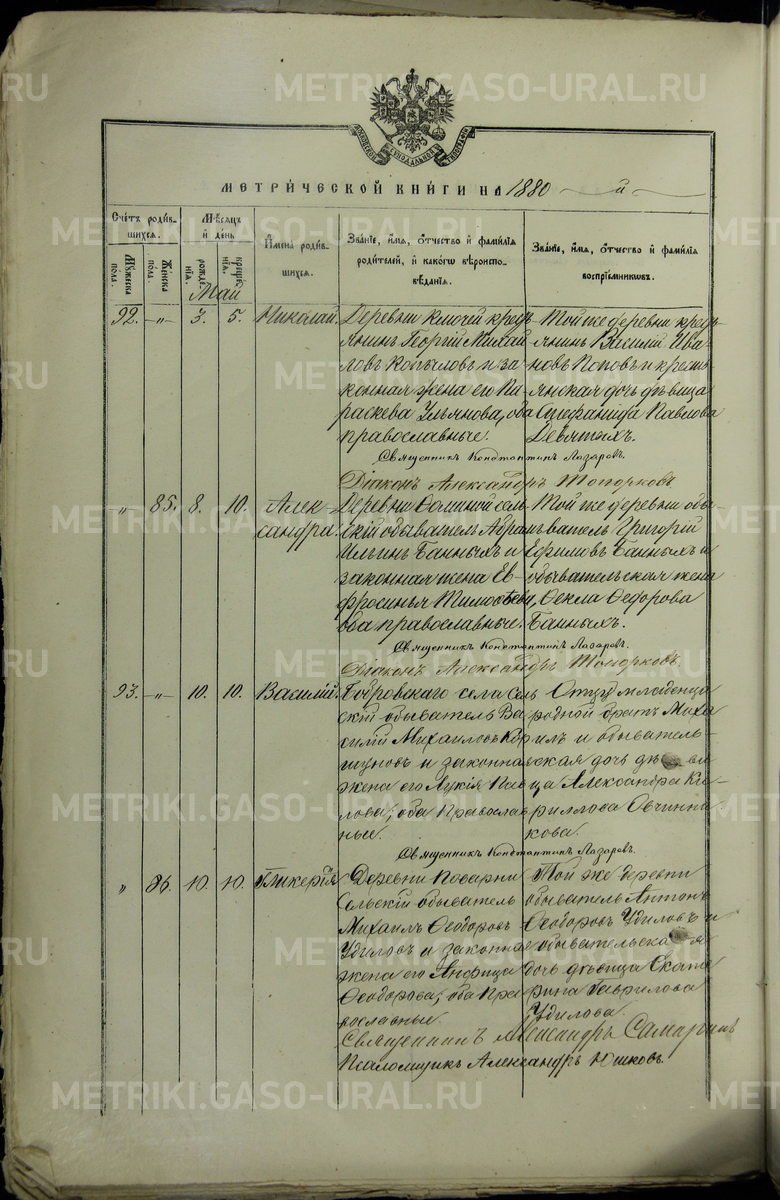 METRIKI.GASO-URAL.RU
МОСКОВСКОЙ СѴНОДАЛЬНОЙ ТИПОГРАФІИ
МЕТРИ́ЧЕСКОЙ КНИ́ГИ НА 1880 й
Сче́тъ роди́в-
шихся.
Му́жеска
по́ла.
Же́нска
по́ла.
Мѣ́сяцъ
и҆ де́нь
рожде́
нїя.
креще́
нїя.
И҆мена̀ роди́в-
шихся.
Зва́нїе, и҆́мя, ѻ҆́тчество и҆ фами́лїѧ
роди́телей, и҆ како́гѡ вѣроиспо-
вѣ́данїѧ.
Зва́нїе, и҆́мя, ѻ҆́тчество и҆ фами́лїѧ
воспрїе́мниковъ.
Май
92. —„— 3. 5. Николай.
Деревни Ключей кресть-
янинъ Георгій Михай-
ловъ Копыловъ и за-
конная жена его Па-
раскева Ульянова, оба
православные.
Той же деревни кресть-
янинъ Василій Ива-
новъ Поповъ и кресть-
янская дочь дѣвица
Стефанида Павлова
Девятыхъ.
Священникъ Константинъ Лазаревъ.
Діаконъ Александръ Топорковъ
„ 85. 8. 10. Алек-
сандра.
Деревни Фоминой сель-
скій обыватель Абрамъ
Ильинъ Банныхъ и
законная жена Ев-
фросинья Тимоѳеева,
оба православные.
Той же деревни обы-
ватель Григорій
Ефимовъ Банныхъ и
обывательская жена
Ѳекла Ѳедорова
Банныхъ.
Священникъ Константинъ Лазаревъ.
Діаконъ Александръ Топорковъ.
93. —„— 10. 10. Василій.
Бобровскаго села Сель-
скій обыватель Ва-
силій Михаиловъ
и законная
жена его Лукія Пав-
лова, оба Православ-
ные.
Отцу младенца
родной братъ Миха-
илъ и обыватель-
ская дочь дѣви-
ца Александра Ки-
риллова Овчинни-
кова.
Священникъ Константинъ Лазаревъ.
„ 86. 10. 10. Гликерія
Деревни Поварни
Сельскій обыватель
Михаилъ Ѳеодоровъ
Удиловъ и законная
жена его Анфица
Ѳеодорова; оба Пра-
вославные.
Той же деревни
обыватель Антонъ
Ѳеодоровъ Удиловъ и
обывательская
дочь дѣвица Екате-
рина Гаврилова
Удилова.
Священникъ Александръ Самаринъ
Псаломщикъ Александръ Юшковъ